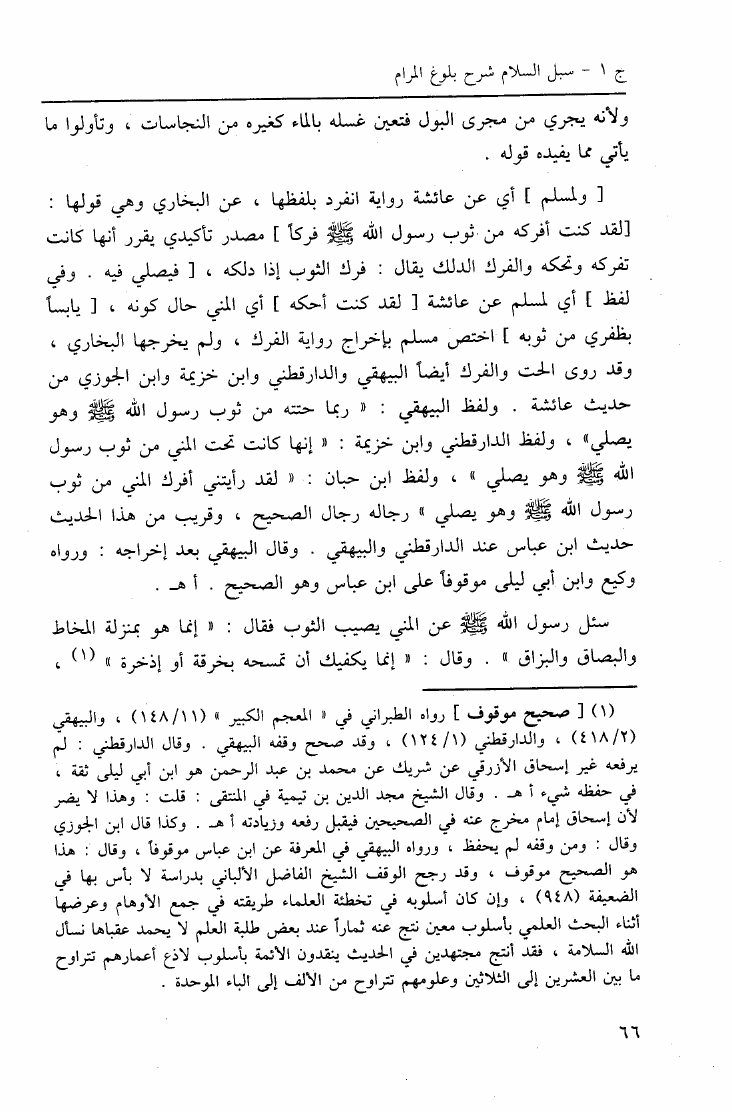 ج ١ - سبل السلام شرح بلوغ المرام
ولأنه يجري من مجرى البول فتعين غسله بالماء كغيره من النجاسات ، وتأولوا ما
يأتي مما يفيده قوله .
[ ولمسلم ] أي عن عائشة رواية انفرد بلفظها ، عن البخاري وهي قولها :
[لقد كنت أفركه من ثوب رسول الله ﷺ فركاً ] مصدر تأكيدي يقرر أنها كانت
تفركه وتحكه والفرك الدلك يقال : فرك الثوب إذا دلكه ، [ فيصلي فيه . وفي
لفظ ] أي لمسلم عن عائشة [ لقد كنت أحكه ] أي المني حال كونه ، [ يابساً
بظفري من ثوبه ] اختص مسلم بإخراج رواية الفرك ، ولم يخرجها البخاري ،
وقد روى الحت والفرك أيضاً البيهقي والدارقطني وابن خزيمة وابن الجوزي من
حديث عائشة . ولفظ البيهقي : « ربما حتته من ثوب رسول الله ﷺ وهو
يصلي» ، ولفظ الدارقطني وابن خزيمة : « إنها كانت تحت المني من ثوب رسول
الله ﷺ وهو يصلي » ، ولفظ ابن حبان : « لقد رأيتني أفرك المني من ثوب
رسول الله ﷺ وهو يصلي » رجاله رجال الصحيح ، وقريب من هذا الحديث
حديث ابن عباس عند الدارقطني والبيهقي . وقال البيهقي بعد إخراجه : ورواه
وكيع وابن أبي ليلى موقوفاً على ابن عباس وهو الصحيح . أ هـ .
سئل رسول الله ﷺ عن المني يصيب الثوب فقال : « إنما هو بمنزلة المخاط
والبصاق والبزاق » . وقال : « إنما يكفيك أن تمسحه بخرقة أو إذخرة » (١) ،
(١) [ صحيح موقوف ] رواه الطبراني في « المعجم الكبير » (١٤٨/١١) ، والبيهقي
(٤١٨/٢) ، والدارقطني (١٢٤/١) ، وقد صحح وقفه البيهقي . وقال الدارقطني : لم
يرفعه غير إسحاق الأزرقي عن شريك عن محمد بن عبد الرحمن هو ابن أبي ليلى ثقة ،
في حفظه شيء أ هـ . وقال الشيخ مجد الدين بن تيمية في المنتقى : قلت : وهذا لا يضر
لأن إسحاق إمام مخرج عنه في الصحيحين فيقبل رفعه وزيادته أ هـ . وكذا قال ابن الجوزي
وقال : ومن وقفه لم يحفظ ، ورواه البيهقي في المعرفة عن ابن عباس موقوفاً ، وقال : هذا
هو الصحيح موقوف ، وقد رجح الوقف الشيخ الفاضل الألباني بدراسة لا بأس بها في
الضعيفة (٩٤٨) ، وإن كان أسلوبه في تخطئة العلماء طريقته في جمع الأوهام وعرضها
أثناء البحث العلمي بأسلوب معين نتج عنه ثماراً عند بعض طلبة العلم لا يحمد عقباها نسأل
الله السلامة ، فقد أنتج مجتهدين في الحديث ينقدون الأئمة بأسلوب لاذع أعمارهم تتراوح
ما بين العشرين إلى الثلاثين وعلومهم تتراوح من الألف إلى الباء الموحدة .
٦٦